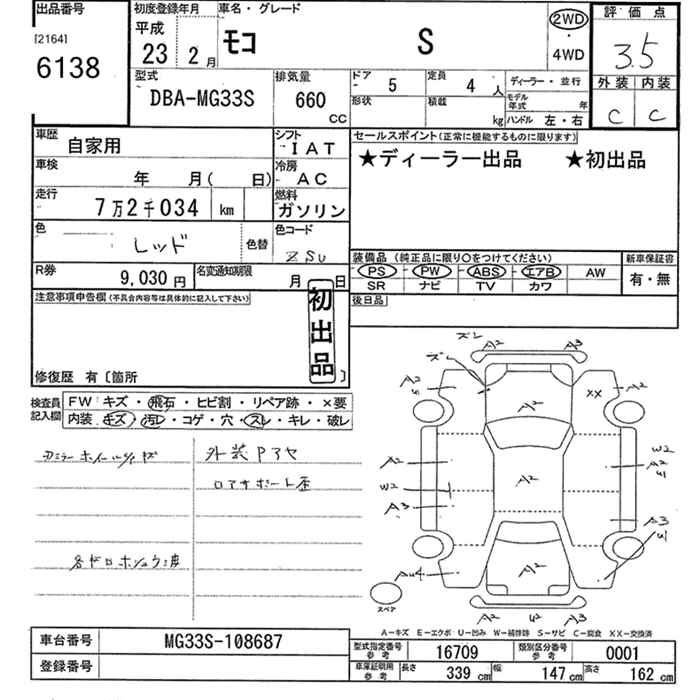 出品番号
[2164]
6138
初度登録年月
平成
23 2月
車名・グレード
モコ S
2WD
・
4WD
評価点
3.5
外装 内装
C C
型式
DBA-MG33S
排気量
660
CC
ドア
5
定員
4 人
形状
積載
kg
ディーラー・並行
モデル年式 年
ハンドル 左・右
車歴
自家用
シフト
IAT
車検
年 月( 日)
冷房
AC
走行
7万2千034 km
燃料
ガソリン
色
レッド
色替
色コード
ZSU
R券
9,030円
名変通知期限
月 日
セールスポイント(正常に機能するものに限ります)
★ディーラー出品 ★初出品
装備品 (純正品に限り○をつけてください)
PS - PW - ABS - エアB - AW
SR ナビ TV カワ
新車保証書
有・無
後日品
注意事項申告欄(不具合内容等は具体的に記入して下さい)
初出品
修復歴 有〔箇所 〕
検査員記入欄
FW キズ・飛石・ヒビ割・リペア跡・×要
内装 キズ・汚レ・コゲ・穴・スレ・キレ・破レ
外装PアセA
ロアサポート歪
ズレ
A2 A3
ズレ
A2
S
XX
A2
A2
A2
W2
A3
A2
W2
A2
U1
A3
U1
AU4
A2
スペア
A2 U2 A3
A-キズ E-エクボ U-凹み W-補修跡 S-サビ C-腐食 XX-交換済
車台番号
MG33S-108687
登録番号
型式指定番号 参考
16709
類別区分番号 参考
0001
車庫証明用 参考
長さ 339 cm 幅 147 cm 高さ 162 cm